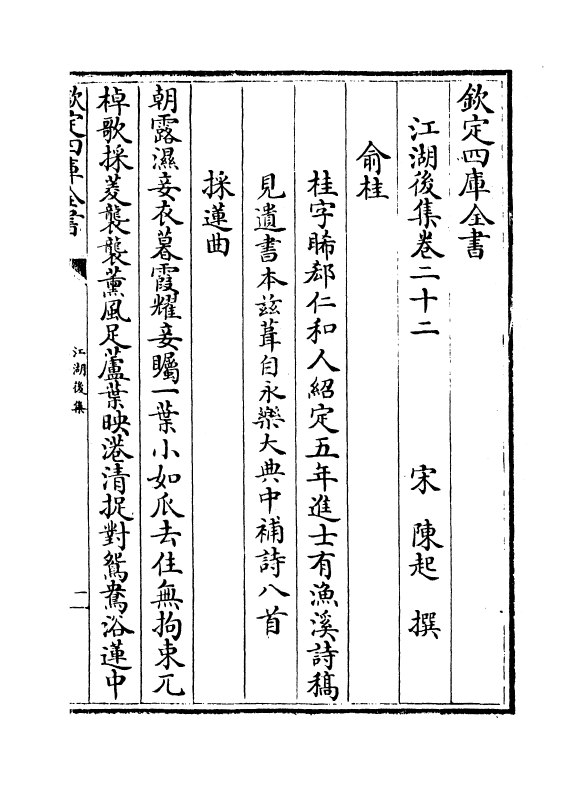 欽定四庫全書
江湖後集卷二十二
宋 陳起 撰
俞桂
桂字晞郄仁和人紹定五年進士有漁溪詩稿
見遺書本兹葺自永樂大典中補詩八首
採蓮曲
朝露濕妾衣暮霞耀妾矚一葉小如瓜去住無拘束兀
棹歌採菱襲襲薰風足蘆葉映港清捉對鴛鴦浴蓮中
欽定四庫全書
江湖後集